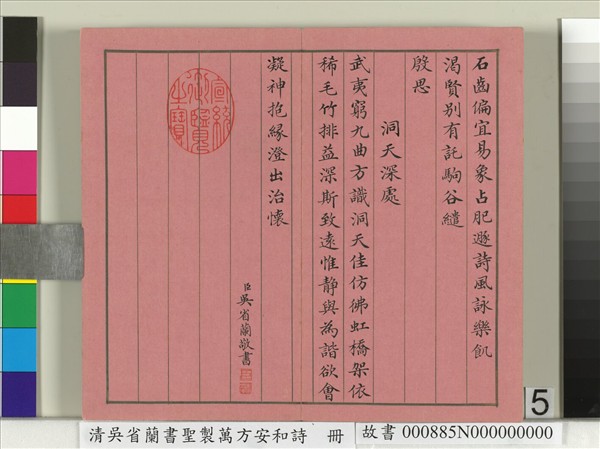 石齒偏宜易象占肥遯詩風詠樂飢
渴賢别有託駒谷繾
殷思
洞天深處
武夷窮九曲方識洞天佳仿彿虹橋架依
稀毛竹排益深斯致遠惟静與為諧欲會
凝神抱緣澄出治懷
臣吳省蘭敬書
宣統御覽之寶
5
清吳省蘭書聖製萬方安和詩 冊
故書 000885N000000000